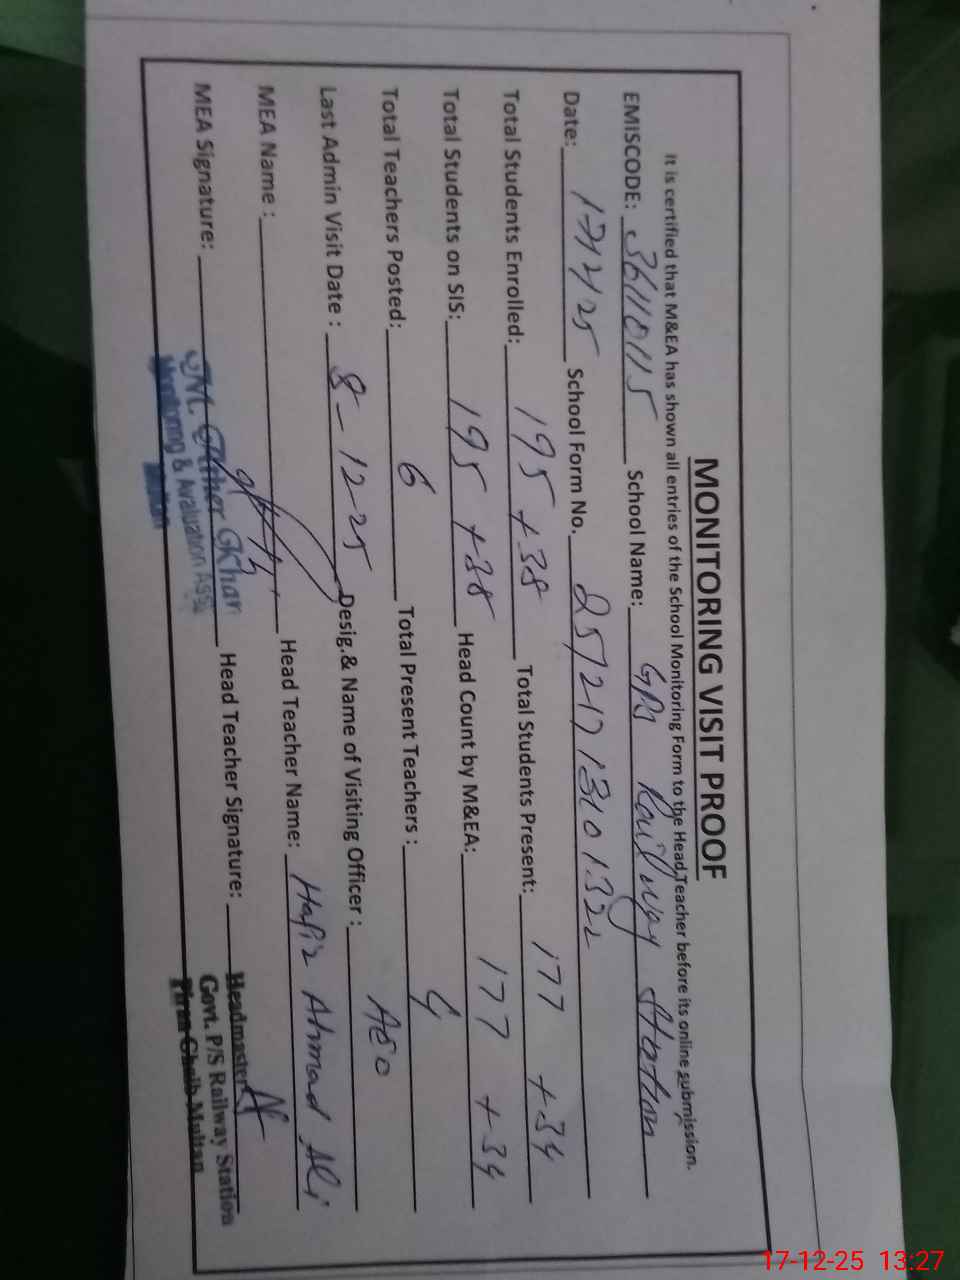 MONITORING VISIT PROOF
It is certified that M&EA has shown all entries of the School Monitoring Form to the Head Teacher before its online submission.
EMISCODE: 36110115 School Name: GPS Railway Station
Date: School Form No.
Total Students Enrolled: 195 + 38 Total Students Present: 177 + 34
Total Students on SIS: 195 + 38 Head Count by M&EA: 177 + 34
Total Teachers Posted: 6 Total Present Teachers : 4
Last Admin Visit Date : 8-12-25 Desig.& Name of Visiting Officer : AEO
MEA Name : Head Teacher Name: Hafiz Ahmad Ali
MEA Signature: Head Teacher Signature:
Monitoring &
Multan
Headmaster
Govt. P/S Railway Station
Multan
17-12-25 13:27